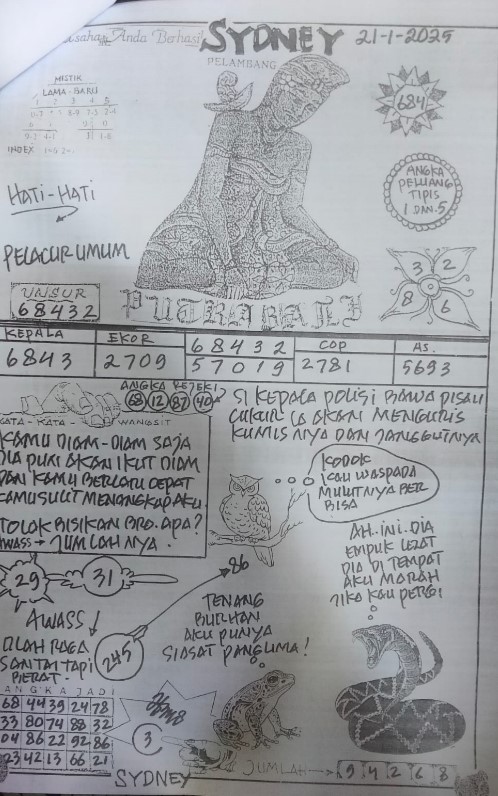 Anda Berhasil
SYDNEY
21-1-2025
PELAMBANG
MISTIK
LAMA - BARU
1 2 3 4 5
INDEX
684
HATI-HATI
ANGKA
PELUANG
TIPIS
1 DAN 5
PELACUR UMUM
3 2
8 6
UNSUR
68432
PUTRA BALI
KEPALA
EKOR
68432
COP
AS.
6843
2709
57019
2781
5693
ANGKA REJEKI
68 12 87 40
SI KEPALA POLISI BAWA PISAU
CUKUR IA AKAN MENGURIS
KUMIS NYA DAN JANGGUTNYA
KATA - KATA WANGSIT
KAMU DIAM-DIAM SAJA
DIA PUN AKAN IKUT DIAM
DAN KAMU BERLARI CEPAT
KAMU SULIT MENANGKAP AKU
TOLOK BISIKAN BRO. APA?
AWASS → JUMLAHNYA.
KODOK
KAU WASPADA
MULUTNYA BER
BISA
AH. INI. DIA
EMPUK LEZAT
DIA DI TEMPAT
AKU MARAH
JIKA KAU PERGI
29
31
86
AWASS!
OLAH RAGA
SANTAI TAPI
BERAT.
245
TENANG
BURHAN
AKU PUNYA
SIASAT PANGLIMA!
ANGKA JADI
68 44 39 24 78
33 80 74 88 32
04 86 22 92 86
23 42 13 66 21
3
SYDNEY
JUMLAH → 9 4 2 6 8